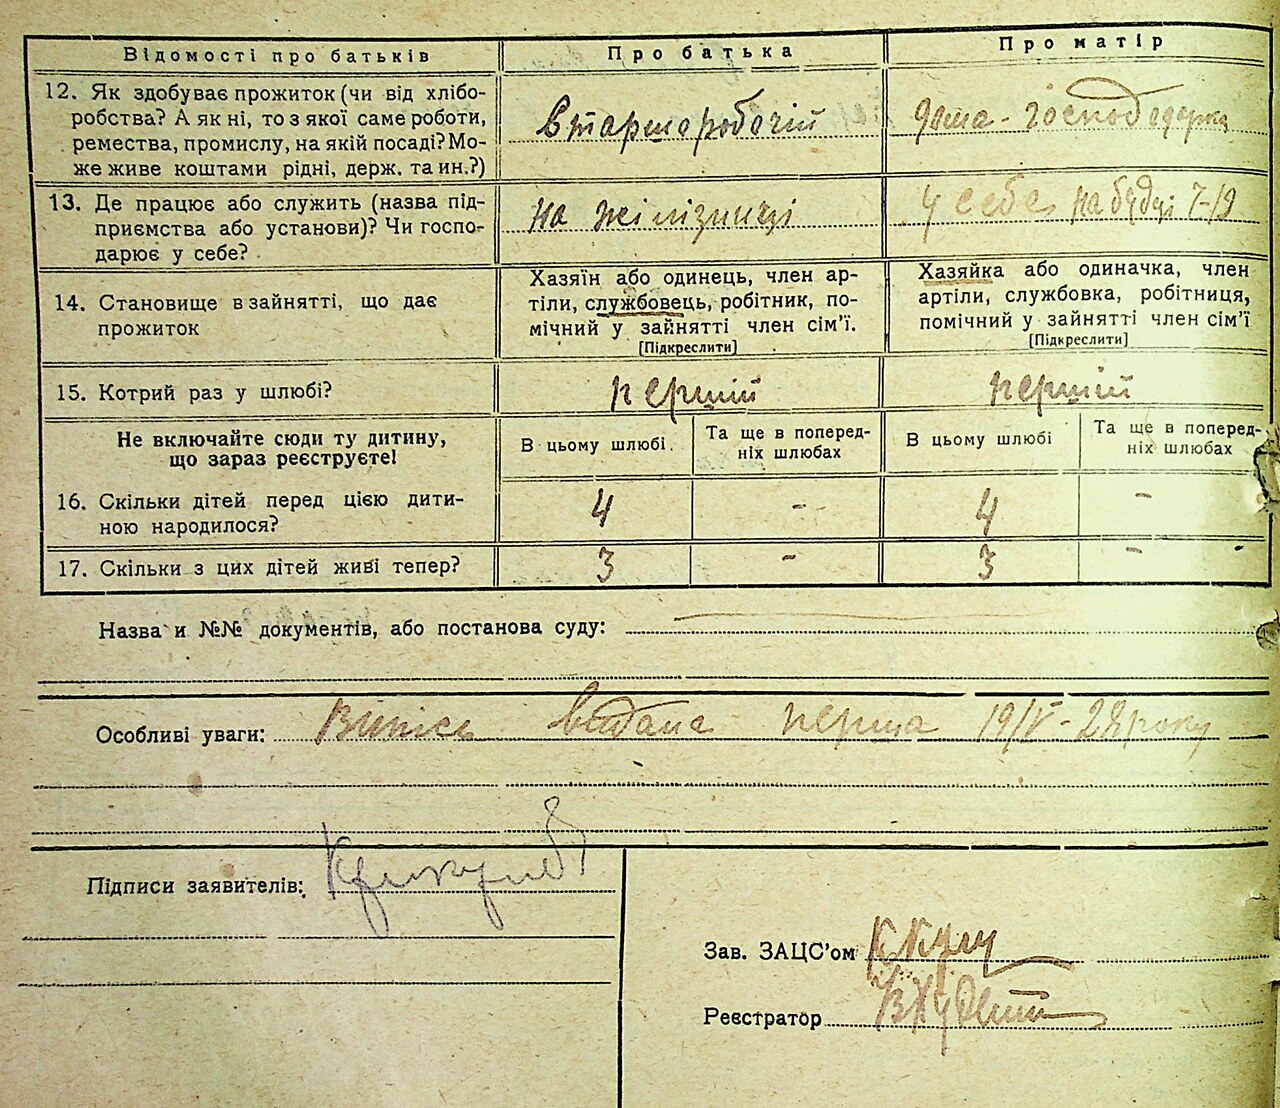 Відомості про батьків
Про батька
Про матір
12. Як здобуває прожиток (чи від хлібо-
робства? А як ні, то з якої саме роботи,
ремества, промислу, на якій посаді? Мо-
же живе коштами рідні, держ. та ин.?)
старшоробочій
дома-господарка
13. Де працює або служить (назва під-
приємства або установи)? Чи госпо-
дарює у себе?
на жілізниці
у себе на будці 7-19
14. Становище в зайнятті, що дає
прожиток
Хазяїн або одинець, член ар-
тіли, службовець, робітник, по-
мічний у зайнятті член сім'ї.
[Підкреслити]
Хазяйка або одиначка, член
артіли, службовка, робітниця,
помічний у зайнятті член сім'ї
[Підкреслити]
15. Котрий раз у шлюбі?
першій
першій
Не включайте сюди ту дитину,
що зараз реєструєте!
В цьому шлюбі
Та ще в поперед-
ніх шлюбах
В цьому шлюбі
Та ще в поперед-
ніх шлюбах
16. Скільки дітей перед цією дити-
ною народилося?
4
-
4
-
17. Скільки з цих дітей живі тепер?
3
-
3
-
Назва и №№ документів, або постанова суду:
Особливі уваги: Випись видана перша 19/V-28 року
Підписи заявителів:
Зав. ЗАЦС'ом
Реєстратор